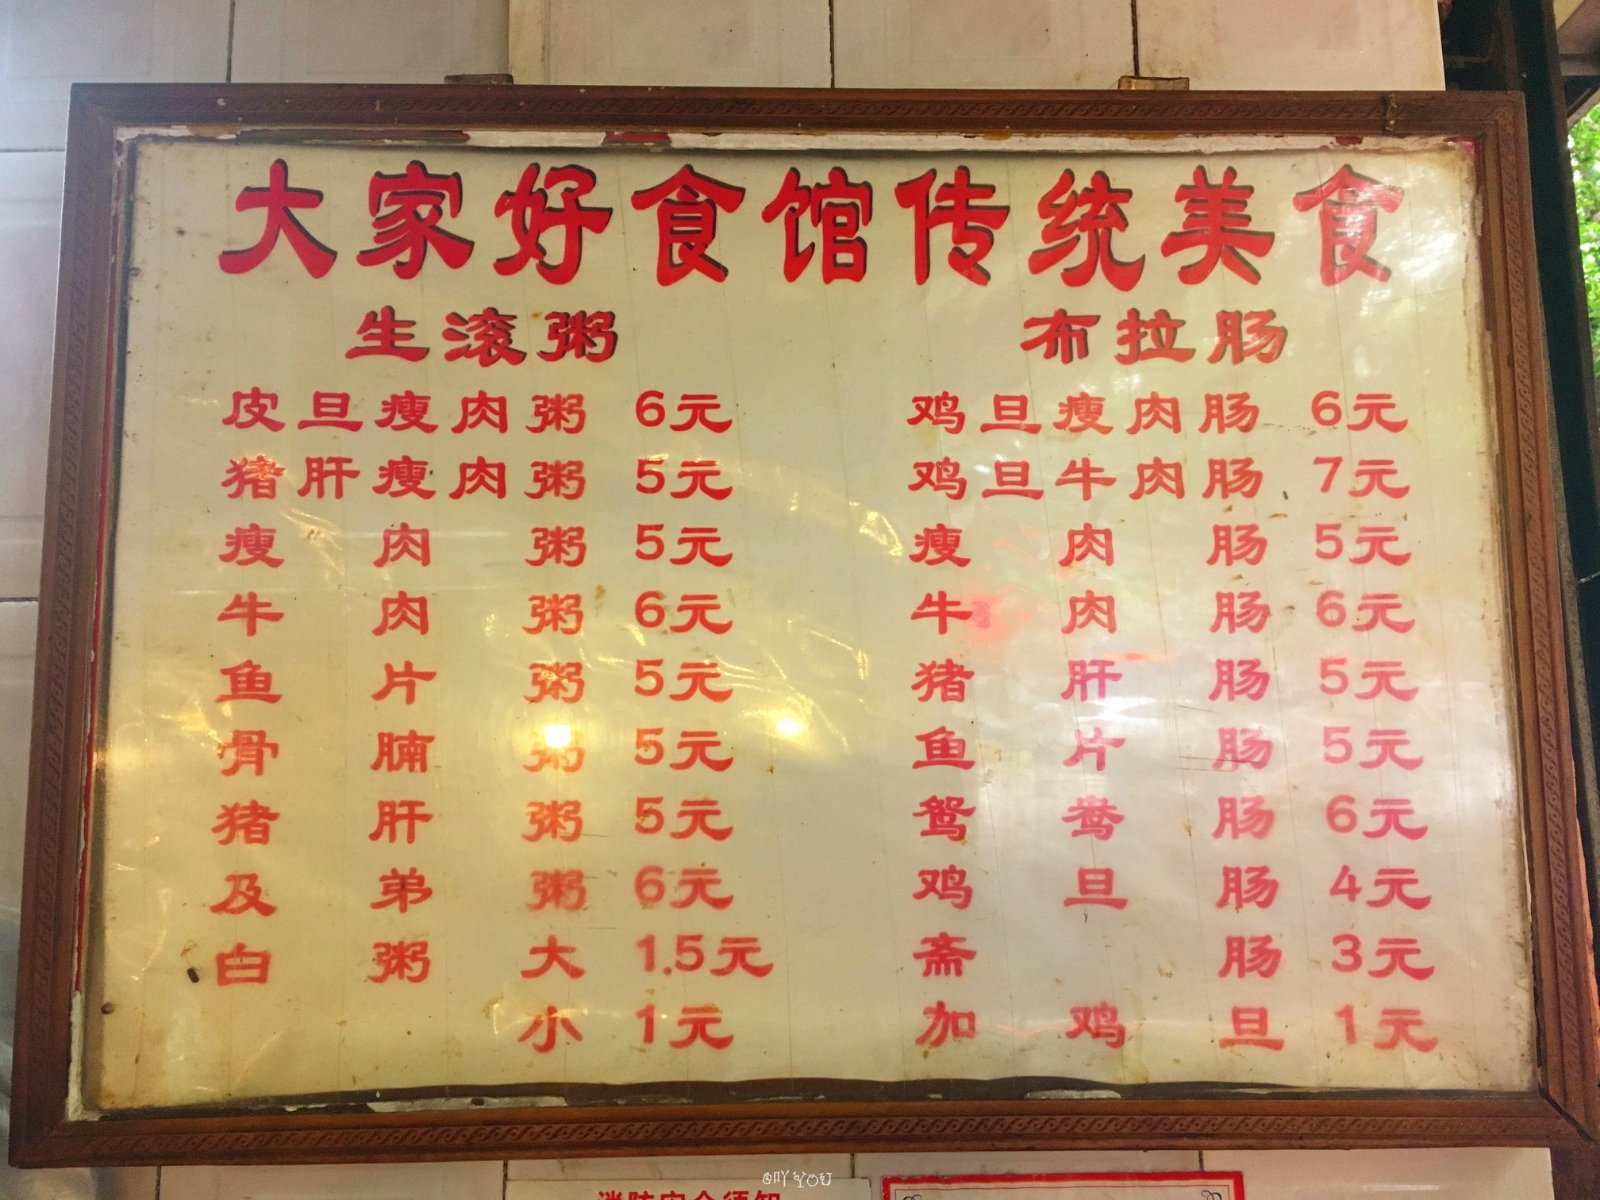 大家好食馆传统美食
生滚粥
皮旦瘦肉粥 6元
猪肝瘦肉粥 5元
瘦肉粥 5元
牛肉粥 6元
鱼片粥 5元
骨腩粥 5元
猪肝粥 5元
及弟粥 6元
白粥 大 1.5元
小 1元
布拉肠
鸡旦瘦肉肠 6元
鸡旦牛肉肠 7元
瘦肉肠 5元
牛肉肠 6元
猪肝肠 5元
鱼片肠 5元
鸳鸯肠 6元
鸡旦肠 4元
斋肠 3元
加鸡旦 1元
消防安全须知